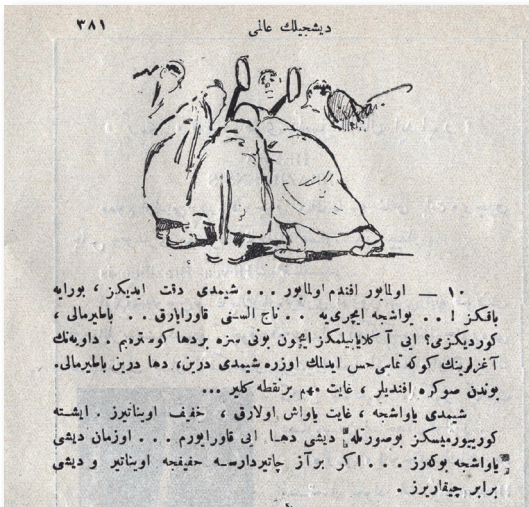 ديشجيلك عالمی
٣٨١
١٠ — اولمايور افندم اولمايور ... شيمدی دقت ايديكز ، بورايه
باقكز ! .. يواشجه ايچری‌يه .. تاج السنی قاورايارق .. باطيرمالی ،
كورديكزمی؟ ايی آ كلايابيلمكز ايچون بونی سزه بردها كوستره‌يم . داويه‌نك
آغزلرينك كوكه تماسی حس ايدلمك اوزره شيمدی درين، دها درين باطيرمالی.
بوندن صوكره افنديلر ، غايت مهم برنقطه كلير ...
شيمدی ياواشجه ، غايت ياواش اولارق ، خفيف اويناتيرز . ايشته
كورييورميسكز بوصورتله ديشی دها ايی قاورايورم ... اوزمان ديشی
ياواشجه بوكه‌رز ... اكر برآز چاتيردارسه حفيفجه اويناتير و ديشی
برابر چيقاريرز .